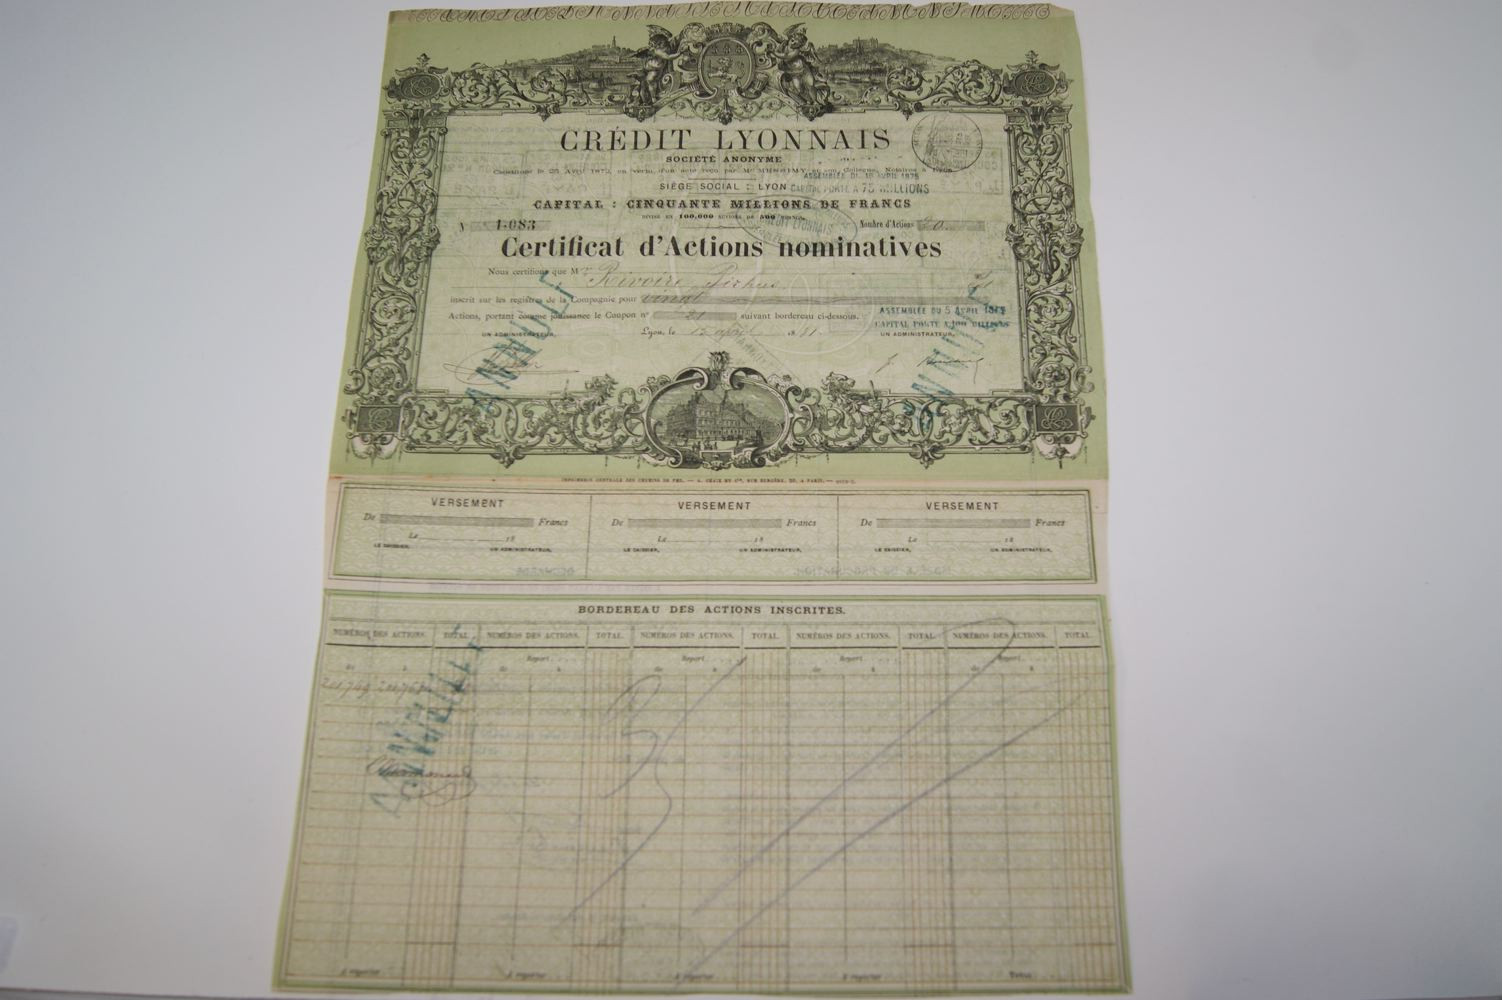 CRÉDIT LYONNAIS
SOCIÉTÉ ANONYME
ASSEMBLÉE DU 18 AVRIL 1875
SIÈGE SOCIAL : LYON CAPITAL PORTÉ A 75 MILLIONS
CAPITAL : CINQUANTE MILLIONS DE FRANCS
DIVISÉ EN 100,000 ACTIONS DE 500 FRANCS
1.083 Nombre d'Actions 20
Certificat d'Actions nominatives
Nous certifions que M
inscrit sur les registres de la Compagnie pour vingt
Actions, portant comme jouissance le Coupon nº 21 suivant bordereau ci-dessous.
ASSEMBLÉE DU 5 AVRIL
CAPITAL PORTÉ A 100 MILLIONS
Lyon, le 12 april 1881
UN ADMINISTRATEUR, UN ADMINISTRATEUR,
ANNULÉ ANNULÉ
IMPRIMERIE CENTRALE DES CHEMINS DE FER. — A. CHAIX ET Cie, RUE BERGÈRE, 20, A PARIS.
VERSEMENT VERSEMENT VERSEMENT
De Francs De Francs De Francs
Le 18 Le 18 Le 18
LE CAISSIER, UN ADMINISTRATEUR, LE CAISSIER, UN ADMINISTRATEUR, LE CAISSIER, UN ADMINISTRATEUR,
BORDEREAU DES ACTIONS INSCRITES.
NUMÉROS DES ACTIONS. TOTAL. NUMÉROS DES ACTIONS. TOTAL. NUMÉROS DES ACTIONS. TOTAL. NUMÉROS DES ACTIONS. TOTAL. NUMÉROS DES ACTIONS. TOTAL.
Report Report Report Report
de à de à de à de à de à
ANNULÉ
A reporter A reporter A reporter A reporter Total